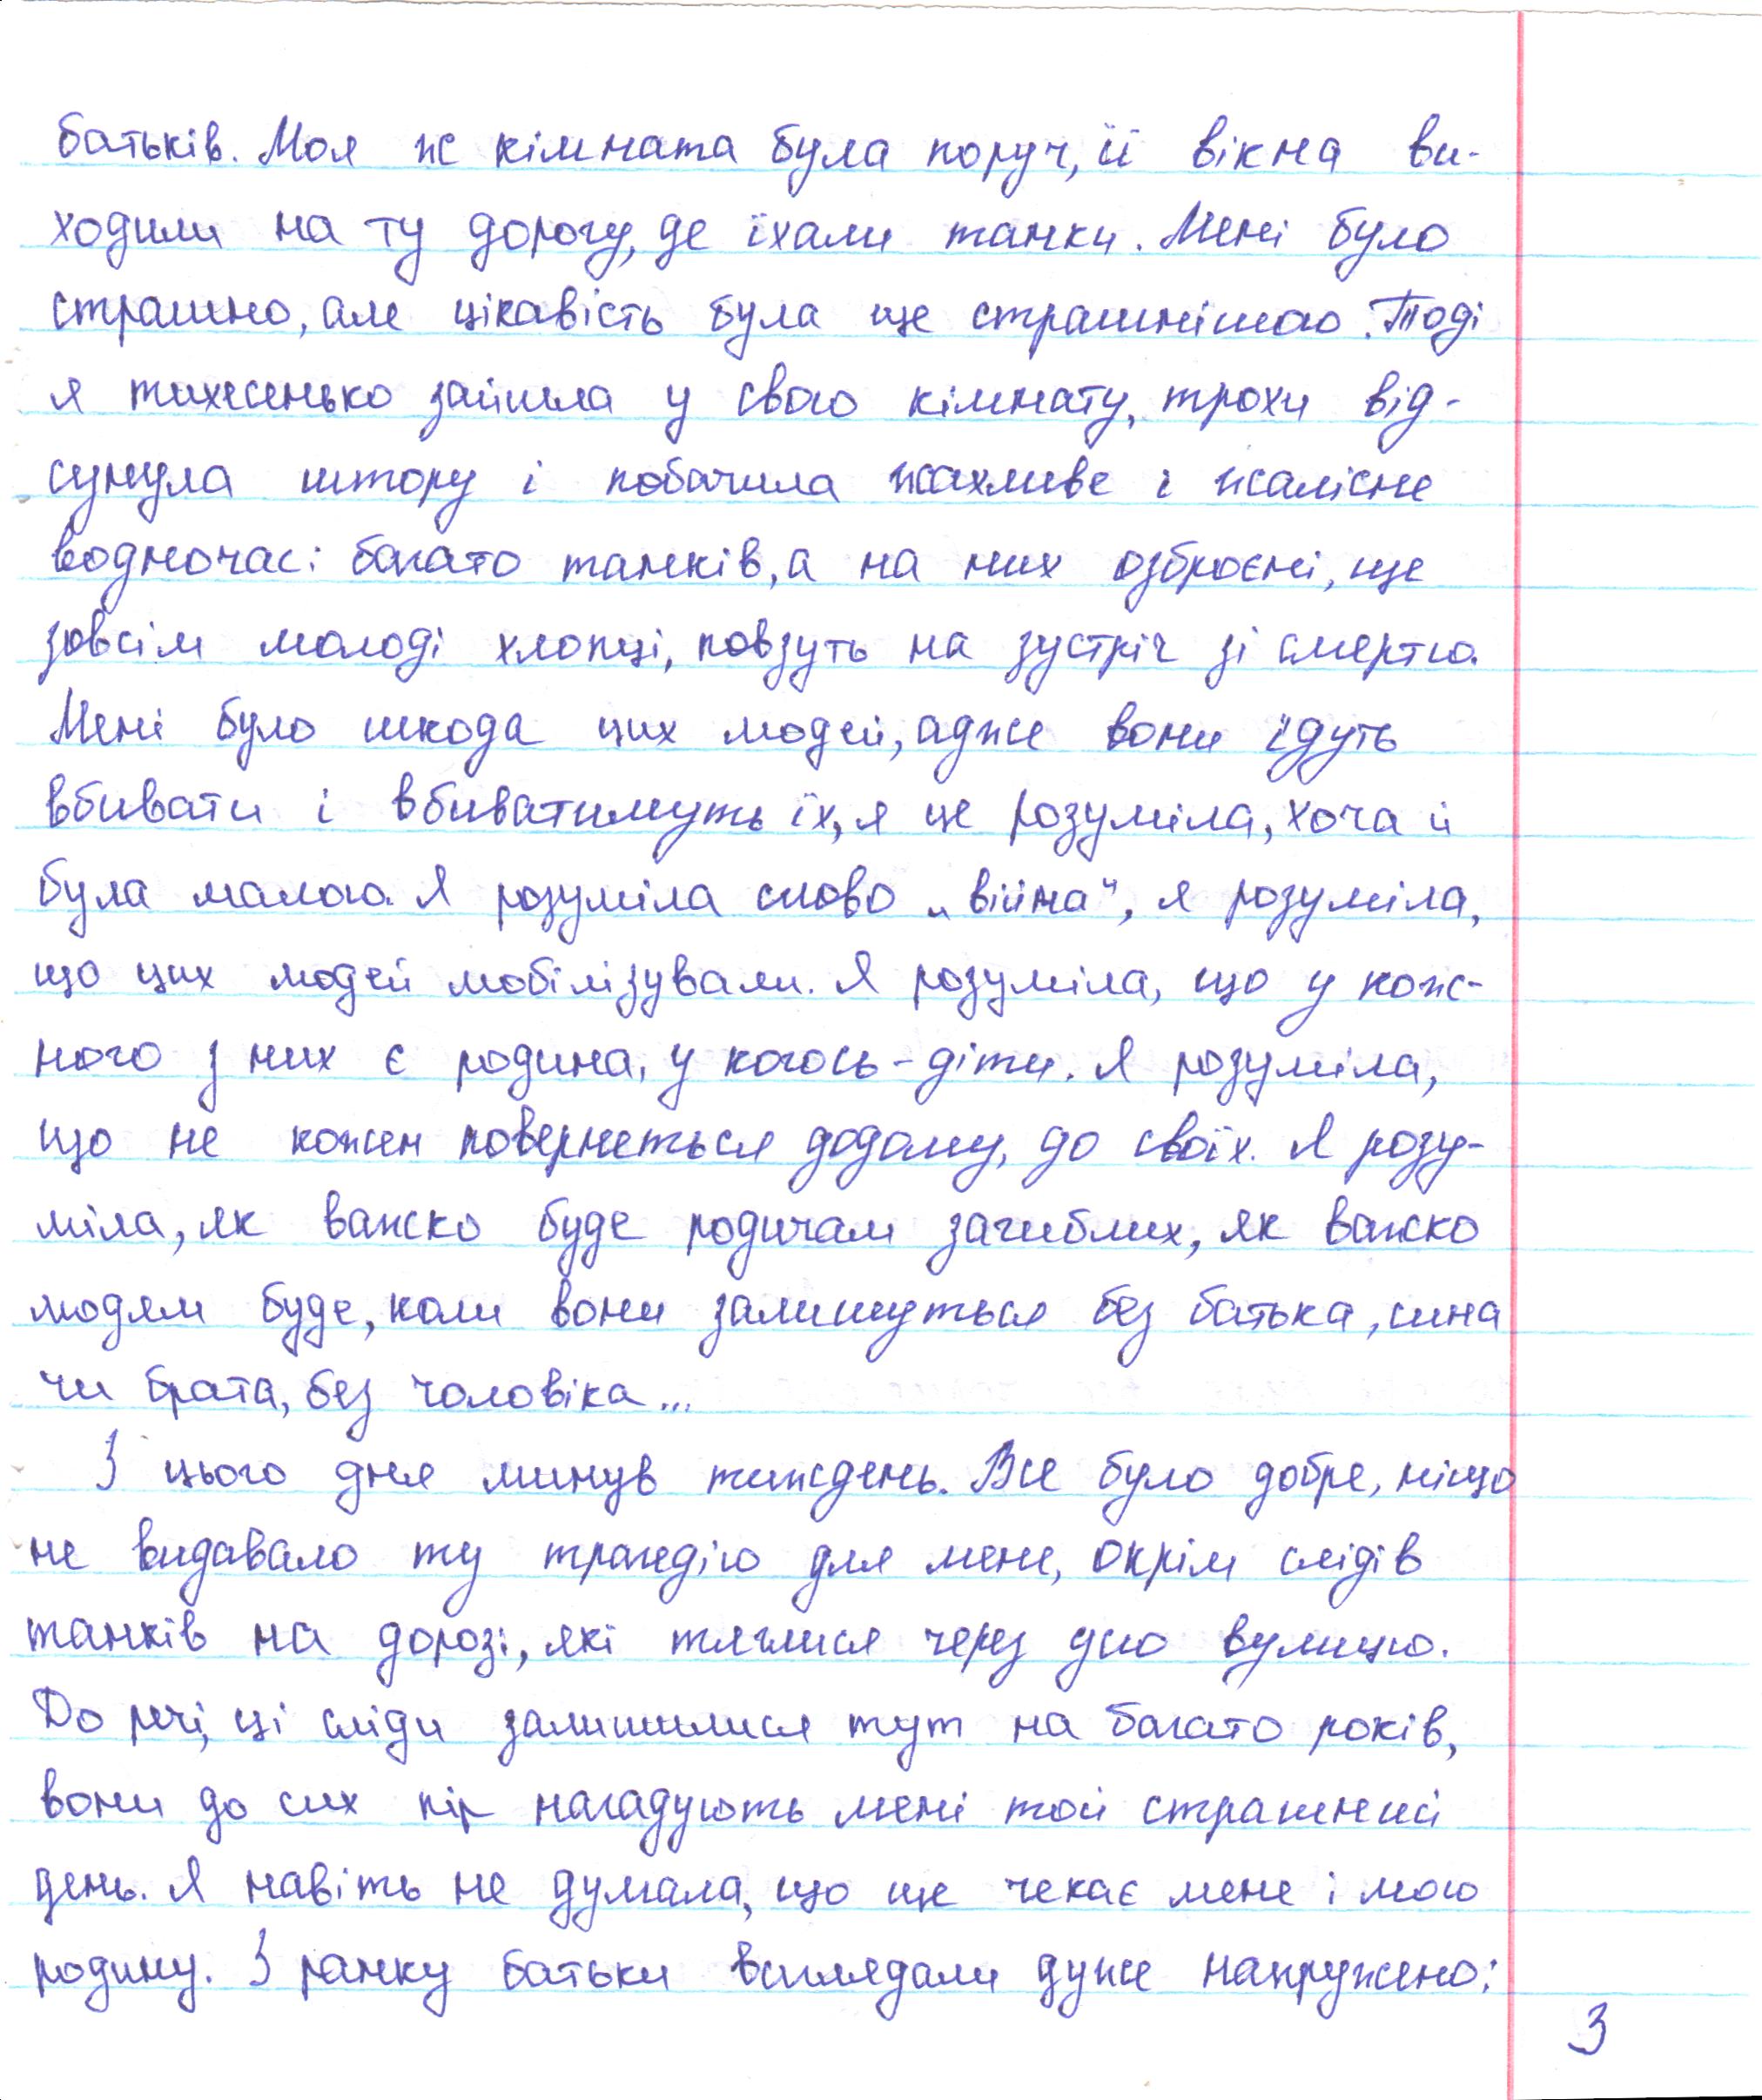 батьків. Моя ж кімната була поруч, її вікна ви-
ходили на ту дорогу, де їхали танки. Мені було
страшно, але цікавість була ще страшнішою. Тоді
я тихесенько зайшла у свою кімнату, трохи від-
сунула штору і побачила жахливе і жалісне
водночас: багато танків, а на них озброєні, ще
зовсім молоді хлопці, повзуть на зустріч зі смертю.
Мені було шкода цих людей, адже вони їдуть
вбивати і вбиватимуть їх, я це розуміла, хоча й
була малою. Я розуміла слово „війна“, я розуміла,
що цих людей мобілізували. Я розуміла, що у кож-
ного з них є родина, у когось - діти. Я розуміла,
що не кожен повернеться додому, до своїх. Я розу-
міла, як важко буде родичам загиблих, як важко
людям буде, коли вони залишуться без батька, сина
чи брата, без чоловіка...
З цього дня минув тиждень. Все було добре, ніщо
не видавало ту трагедію для мене, окрім слідів
танків на дорозі, які тяглися через усю вулицю.
До речі, ці сліди залишилися тут на багато років,
вони до сих пір нагадують мені той страшний
день. Я навіть не думала, що ще чекає мене і мою
родину. З ранку батьки виглядали дуже напружено:
3